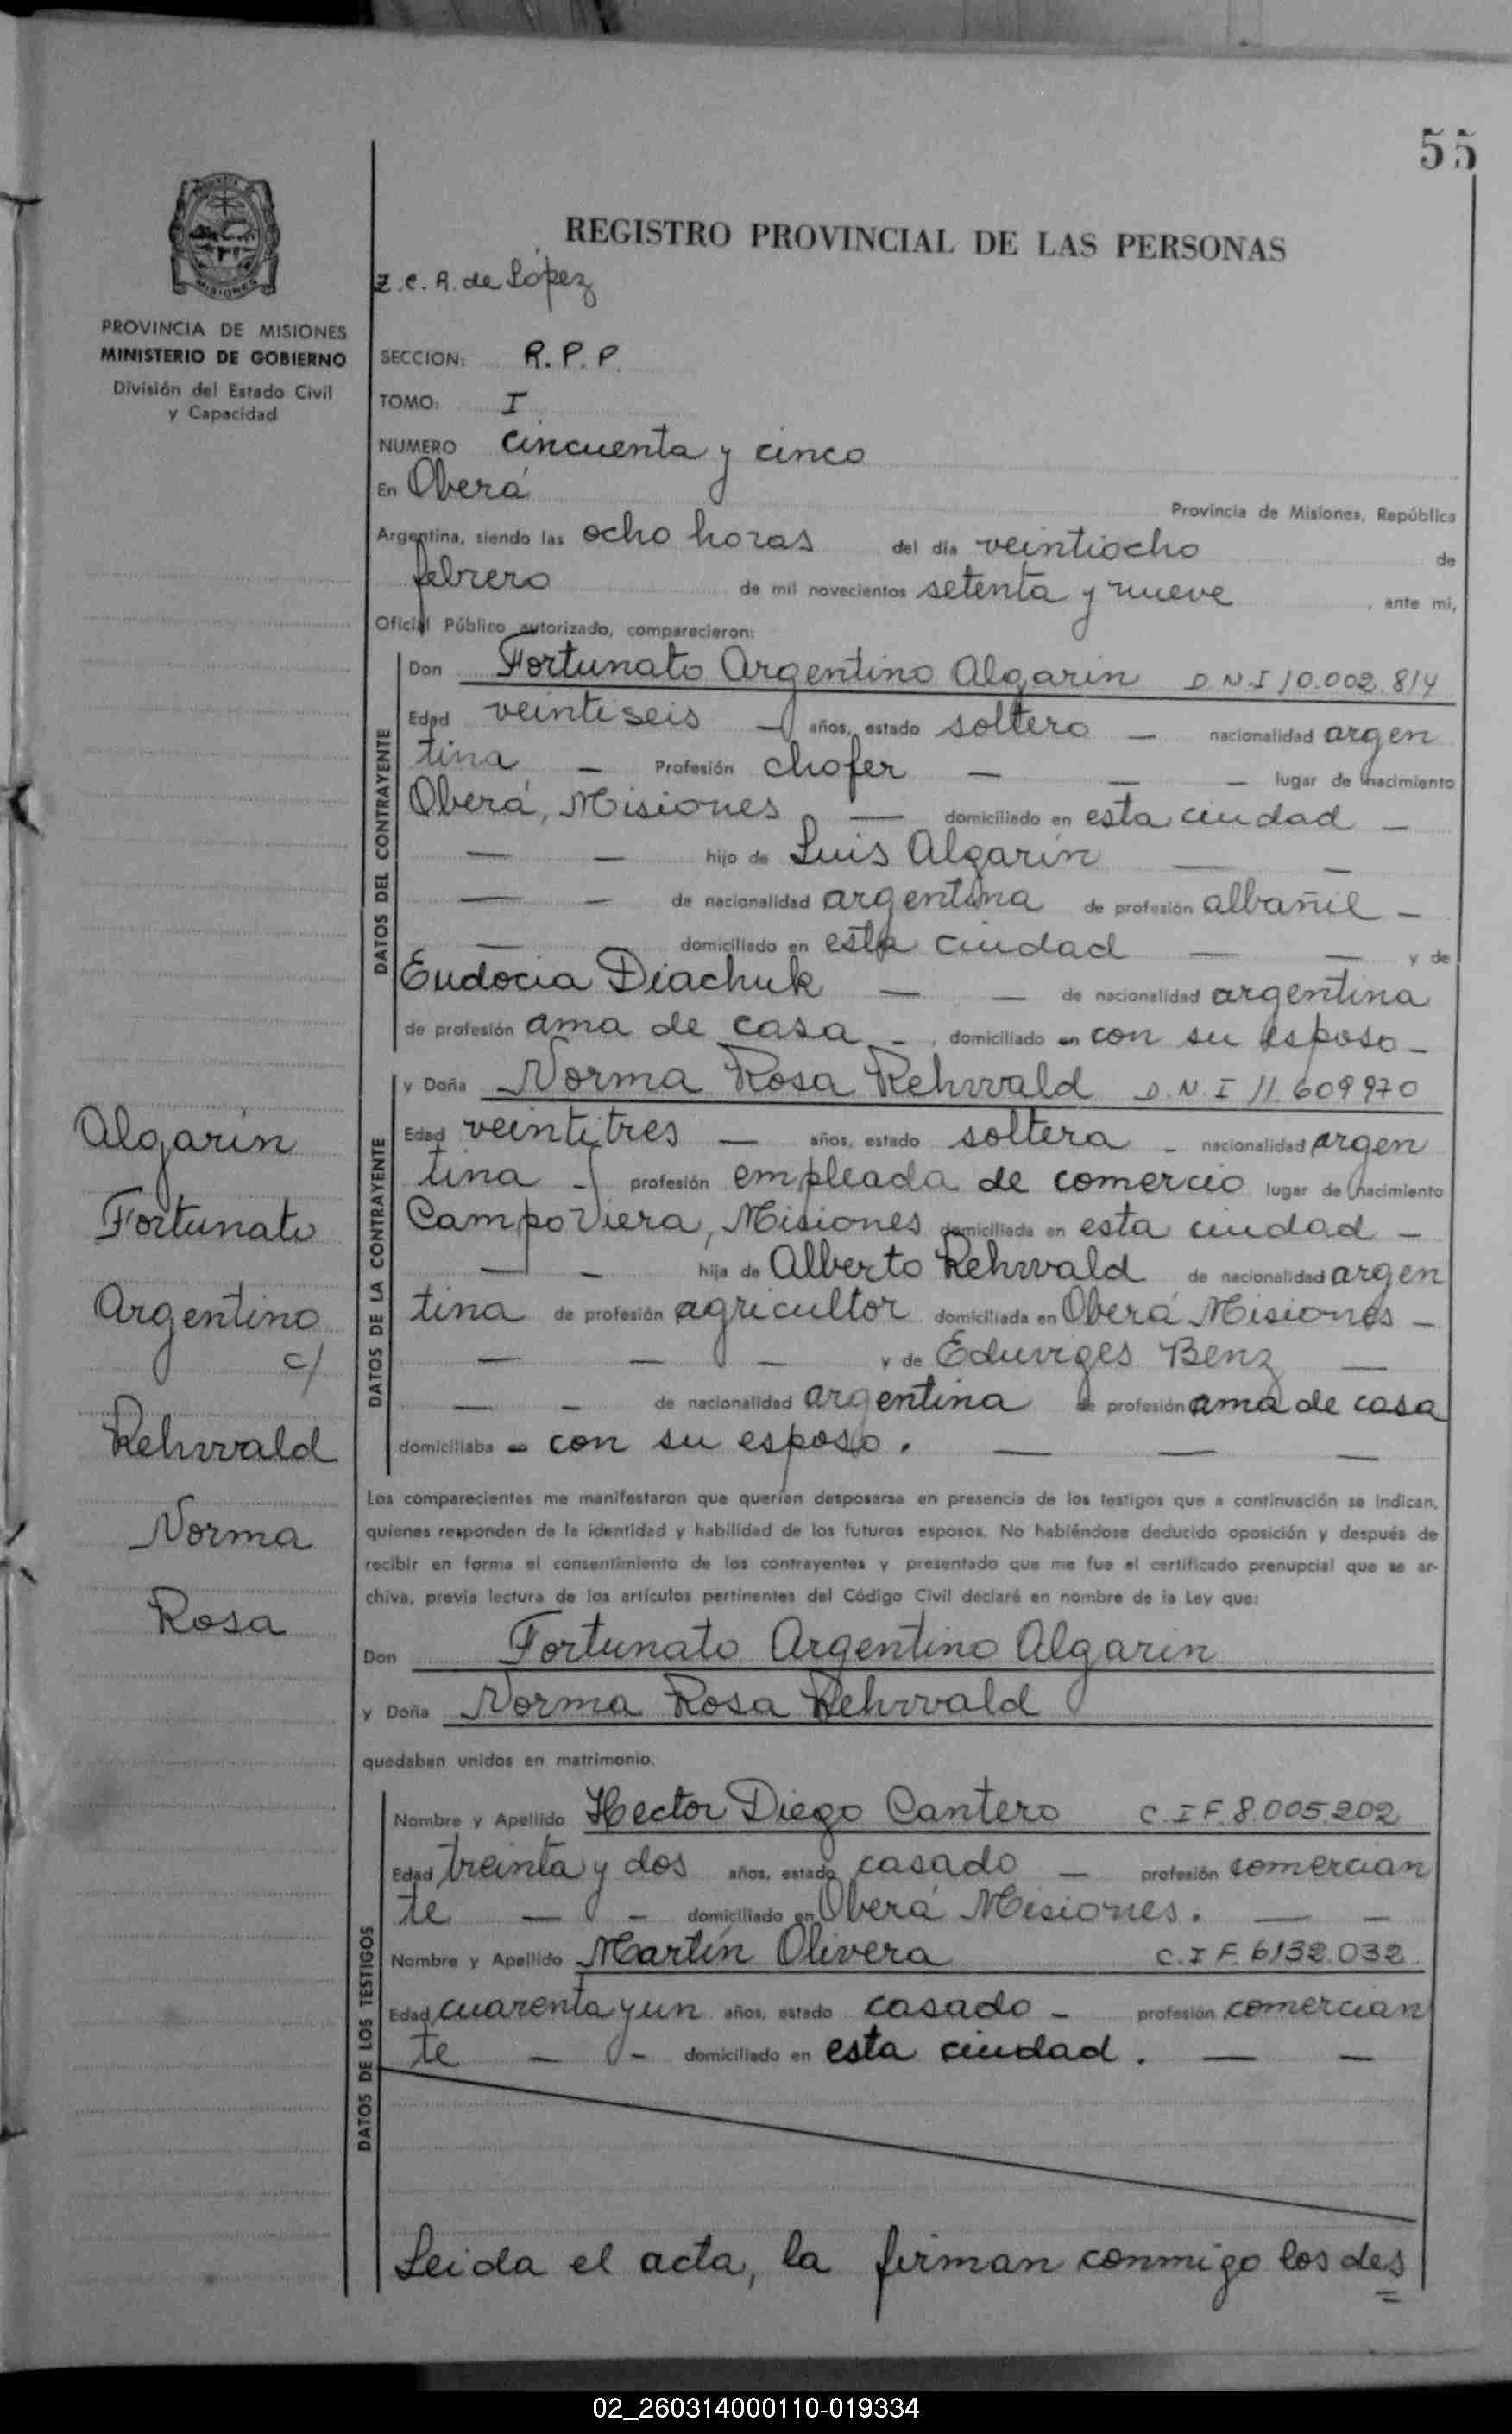 55
REGISTRO PROVINCIAL DE LAS PERSONAS
Z.C.A. de López
MISIONES
PROVINCIA DE MISIONES
MINISTERIO DE GOBIERNO
División del Estado Civil
y Capacidad
SECCION: R.P.P.
TOMO: I
NUMERO cincuenta y cinco
En Oberá
Provincia de Misiones, República
Argentina, siendo las ocho horas del día veintiocho de
febrero de mil novecientos setenta y nueve, ante mí,
Oficial Público autorizado, comparecieron:
DATOS DEL CONTRAYENTE
Don Fortunato Argentino Algarin D.N.I 10.002.814
Edad veintiseis — años, estado soltero — nacionalidad argen
tina — Profesión chofer — — — lugar de nacimiento
Oberá, Misiones — domiciliado en esta ciudad —
— — hijo de Luis Algarin — —
— — de nacionalidad argentina de profesión albañil —
— domiciliado en esta ciudad — — y de
Eudocia Diachuk — — de nacionalidad argentina
de profesión ama de casa —, domiciliado en con su esposo —
DATOS DE LA CONTRAYENTE
y Doña Norma Rosa Rehwald D.N.I 11.609970
Edad veintitres — años, estado soltera — nacionalidad argen
tina — profesión empleada de comercio lugar de nacimiento
Campo Viera, Misiones domiciliada en esta ciudad —
— — hija de Alberto Rehwald de nacionalidad argen
tina de profesión agricultor domiciliada en Oberá Misiones —
— — — y de Eduviges Benz —
— — de nacionalidad argentina de profesión ama de casa
domiciliaba en con su esposo. — — —
Algarín
Fortunato
Argentino
c/
Rehwald
Norma
Rosa
Los comparecientes me manifestaron que querían desposarse en presencia de los testigos que a continuación se indican,
quienes responden de la identidad y habilidad de los futuros esposos. No habiéndose deducido oposición y después de
recibir en forma el consentimiento de los contrayentes y presentado que me fue el certificado prenupcial que se ar-
chiva, previa lectura de los artículos pertinentes del Código Civil declaré en nombre de la Ley que:
Don Fortunato Argentino Algarin
y Doña Norma Rosa Rehwald
quedaban unidos en matrimonio.
DATOS DE LOS TESTIGOS
Nombre y Apellido Hector Diego Cantero C.I F. 8.005.202
Edad treinta y dos años, estado casado — profesión comercian
te — — domiciliado en Oberá Misiones. — —
Nombre y Apellido Martín Olivera C.I F. 6132.032
Edad cuarenta y un años, estado casado — profesión comercian
te — — domiciliado en esta ciudad. — —
Leida el acta, la firman conmigo los des
=
02_260314000110-019334